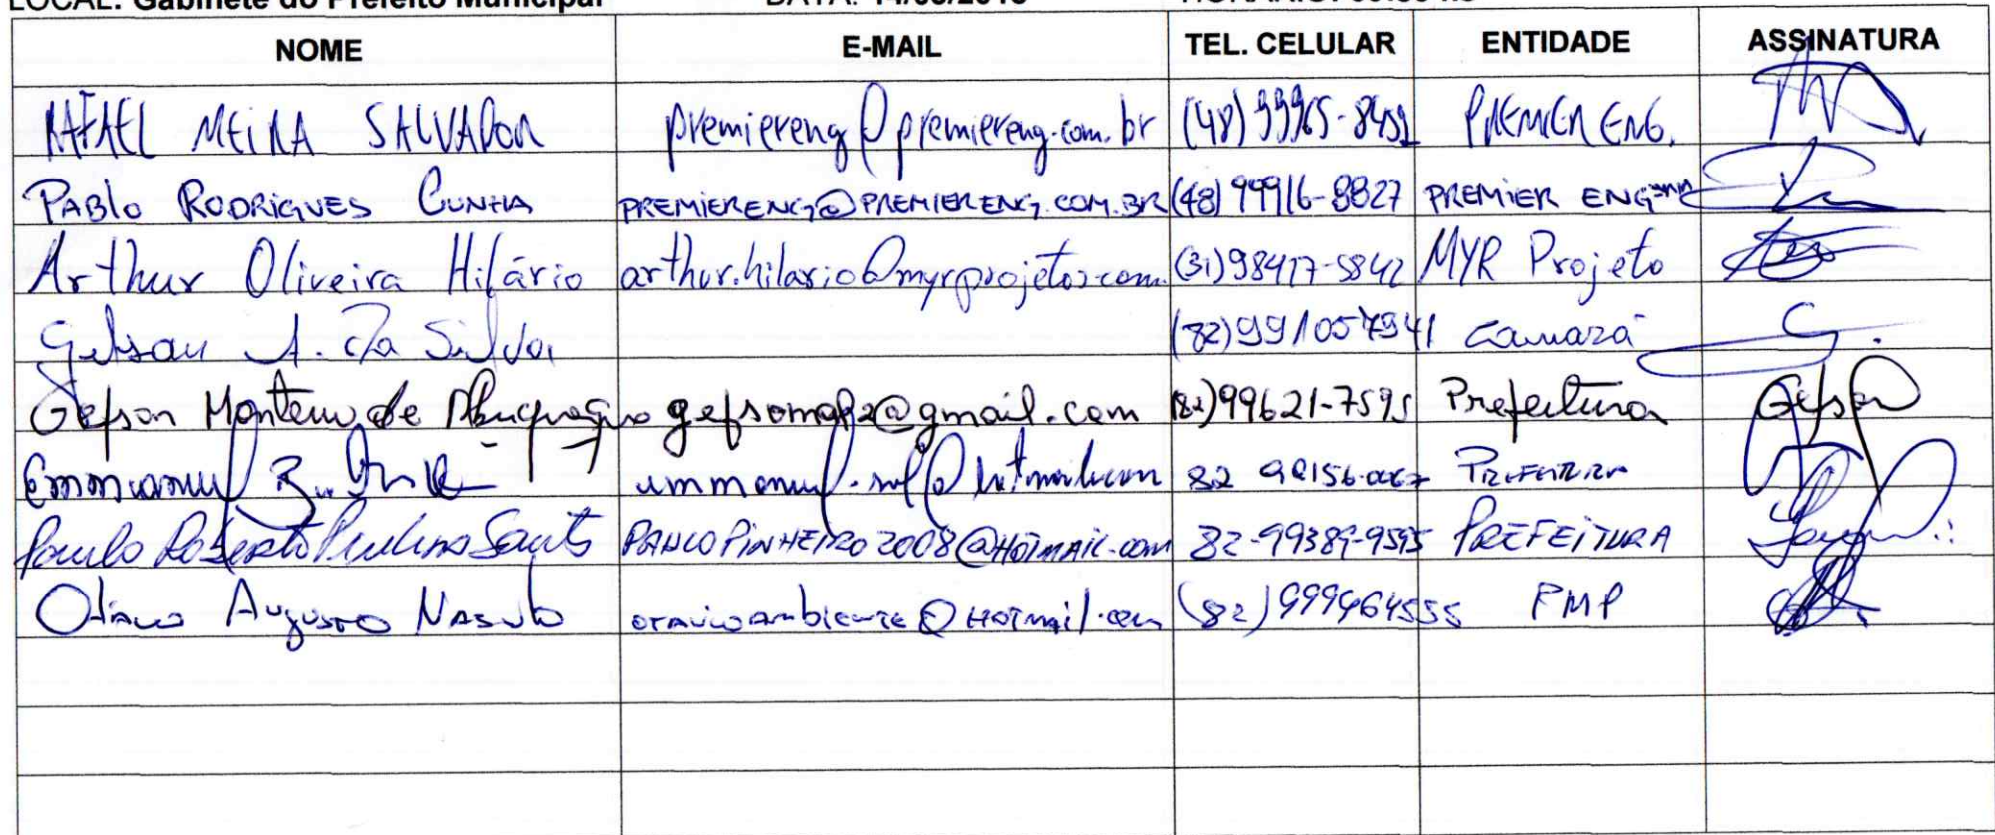 LOCAL: Gabinete do Prefeito Municipal DATA: HORÁRIO:
NOME E-MAIL TEL. CELULAR ENTIDADE ASSINATURA
RAFAEL MEIRA SALVADOR premiereng@premiereng.com.br (48) 99965-8459 PREMIER ENG.
PABlo RODRIGUES CUNHA PREMIERENG@PREMIERENG.COM.BR (48) 99916-8827 PREMIER ENG
Arthur Oliveira Hilário arthur.hilario@myrprojetos.com. (31) 98417-5842 MYR Projeto
Gelson A. Da Silva (82) 991057941
Gefson de gefsomapz@gmail.com (82)99621-7595 Prefeitura Gefson
82 PREFEITURA
Paulo Roberto Santos PAULOPINHEIRO2008@HOTMAIL.COM 82-99389-9595 PREFEITURA
Augusto otavioambiente@HOTMAil.com (82) 999464555 PMP